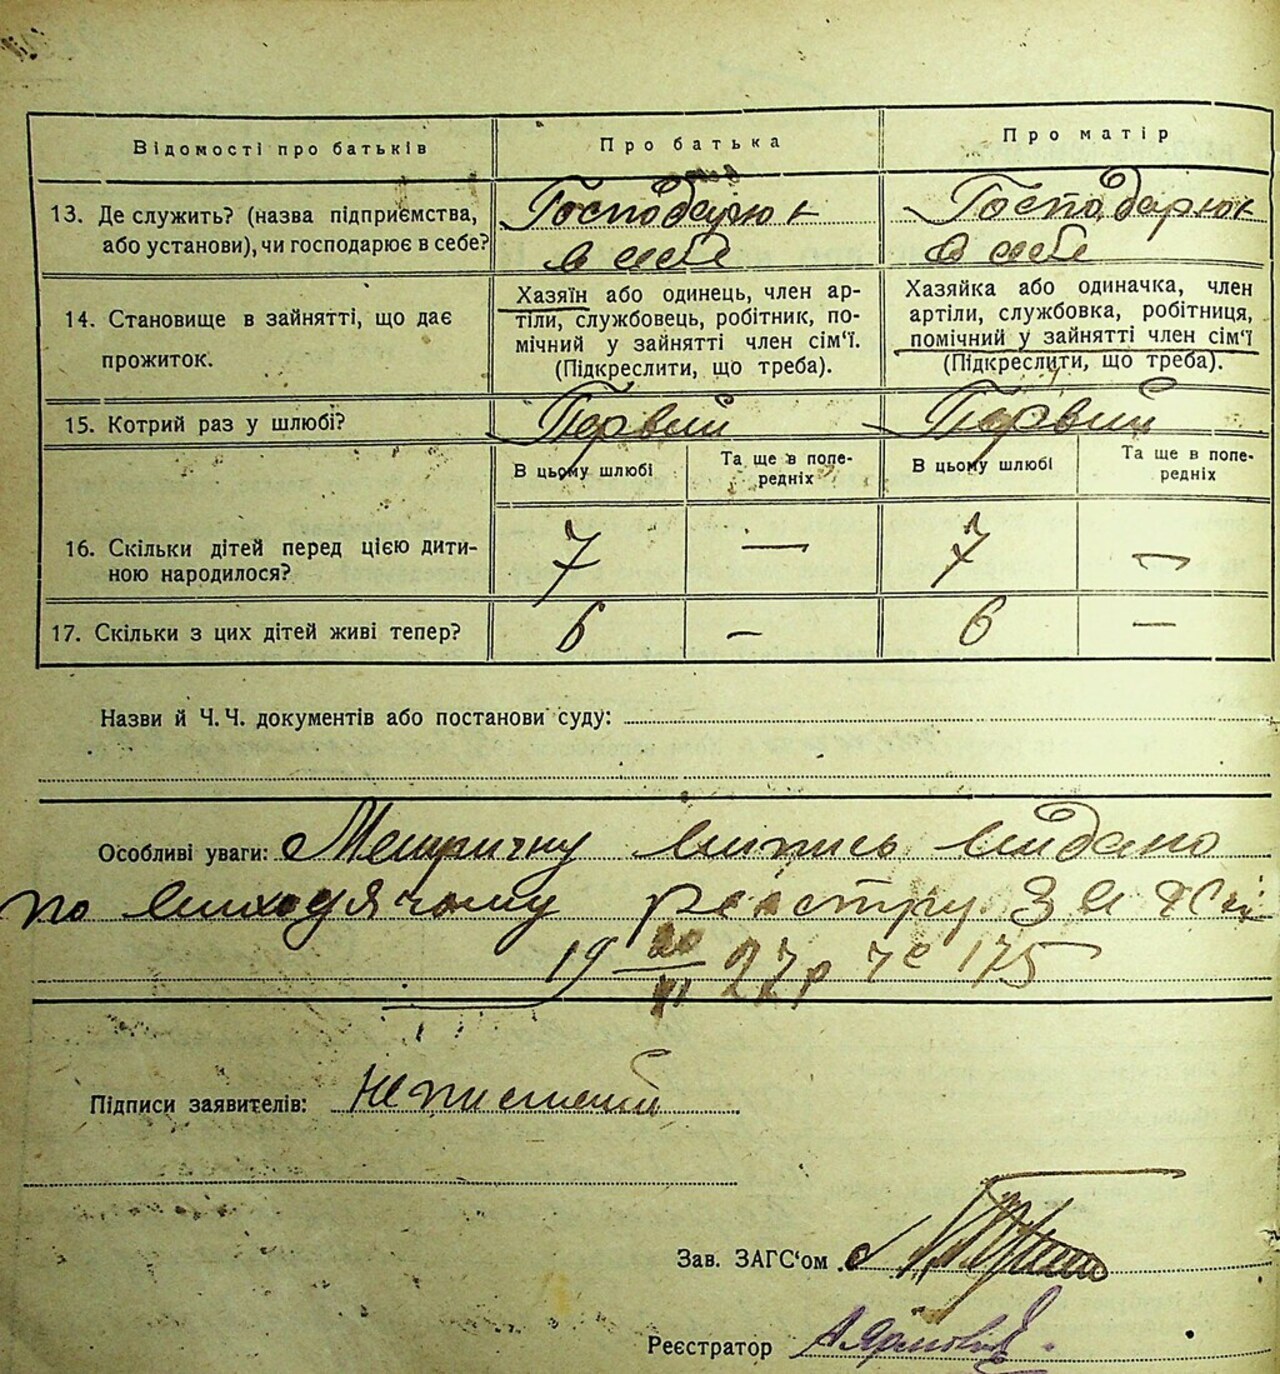 Відомості про батьків
Про батька
Про матір
13. Де служить? (назва підприємства,
або установи), чи господарює в себе?
Господарює
в себе
Господарює
в себе
14. Становище в зайнятті, що дає
прожиток.
Хазяїн або одинець, член ар-
тіли, службовець, робітник, по-
мічний у зайнятті член сім‘ї.
(Підкреслити, що треба).
Хазяйка або одиначка, член
артіли, службовка, робітниця,
помічний у зайнятті член сім‘ї
(Підкреслити, що треба).
15. Котрий раз у шлюбі?
Первий
Первий
В цьому шлюбі
Та ще в попе-
редніх
В цьому шлюбі
Та ще в попе-
редніх
16. Скільки дітей перед цією дити-
ною народилося?
7
—
7
—
17. Скільки з цих дітей живі тепер?
6
—
6
—
Назви й Ч.Ч. документів або постанови суду:
Особливі уваги: Метричну випись видано
по виходячому реєстру за
19 20/VI 27р че 175
Підписи заявителів: Неписьмений
Зав. ЗАГС‘ом
Реєстратор